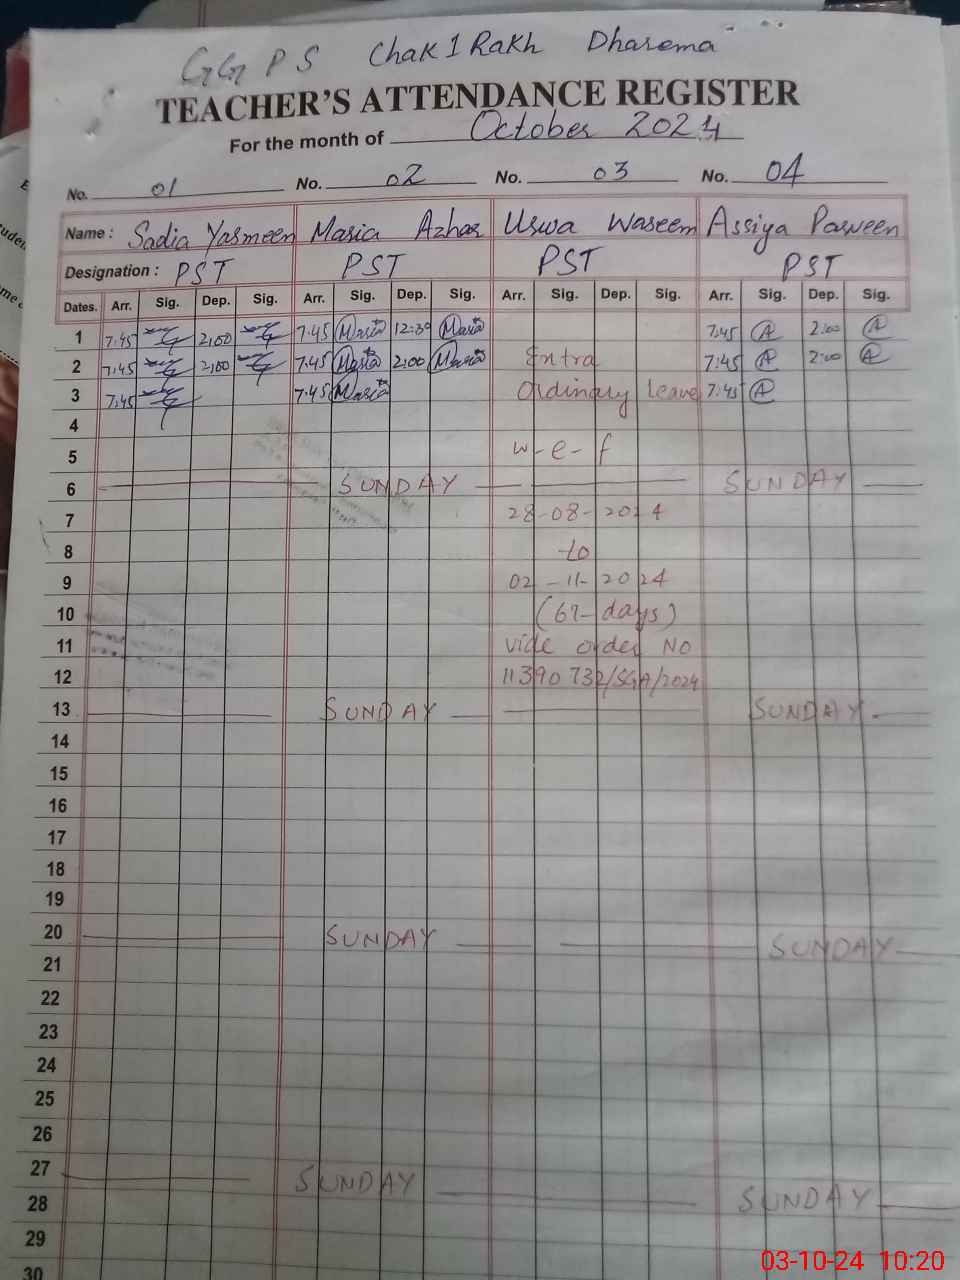 GGPS Chak 1 Rakh Dharema
TEACHER'S ATTENDANCE REGISTER
For the month of October 2024
No. 01 No. 02 No. 03 No. 04
Name : Sadia Yasmeen Maria Azhar Uswa Waseem Assiya Parveen
Designation : PST PST PST PST
Dates. Arr. Sig. Dep. Sig. Arr. Sig. Dep. Sig. Arr. Sig. Dep. Sig. Arr. Sig. Dep. Sig.
1 7:45 2:00 7:45 Maria 12:30 Maria 7:45 A 2:00 A
2 7:45 2:00 7:45 Maria 2:00 Maria Extra 7:45 A 2:00 A
3 7:45 7:45 Maria Ordinary leave 7:45 A
4
5 w-e-f
6 SUNDAY SUNDAY
7 28-08-2024
8 to
9 02-11-2024
10 (67-days)
11 vide order No
12 11390732/SGA/2024
13 SUNDAY SUNDAY
14
15
16
17
18
19
20 SUNDAY SUNDAY
21
22
23
24
25
26
27 SUNDAY
28 SUNDAY
29
30
03-10-24 10:20